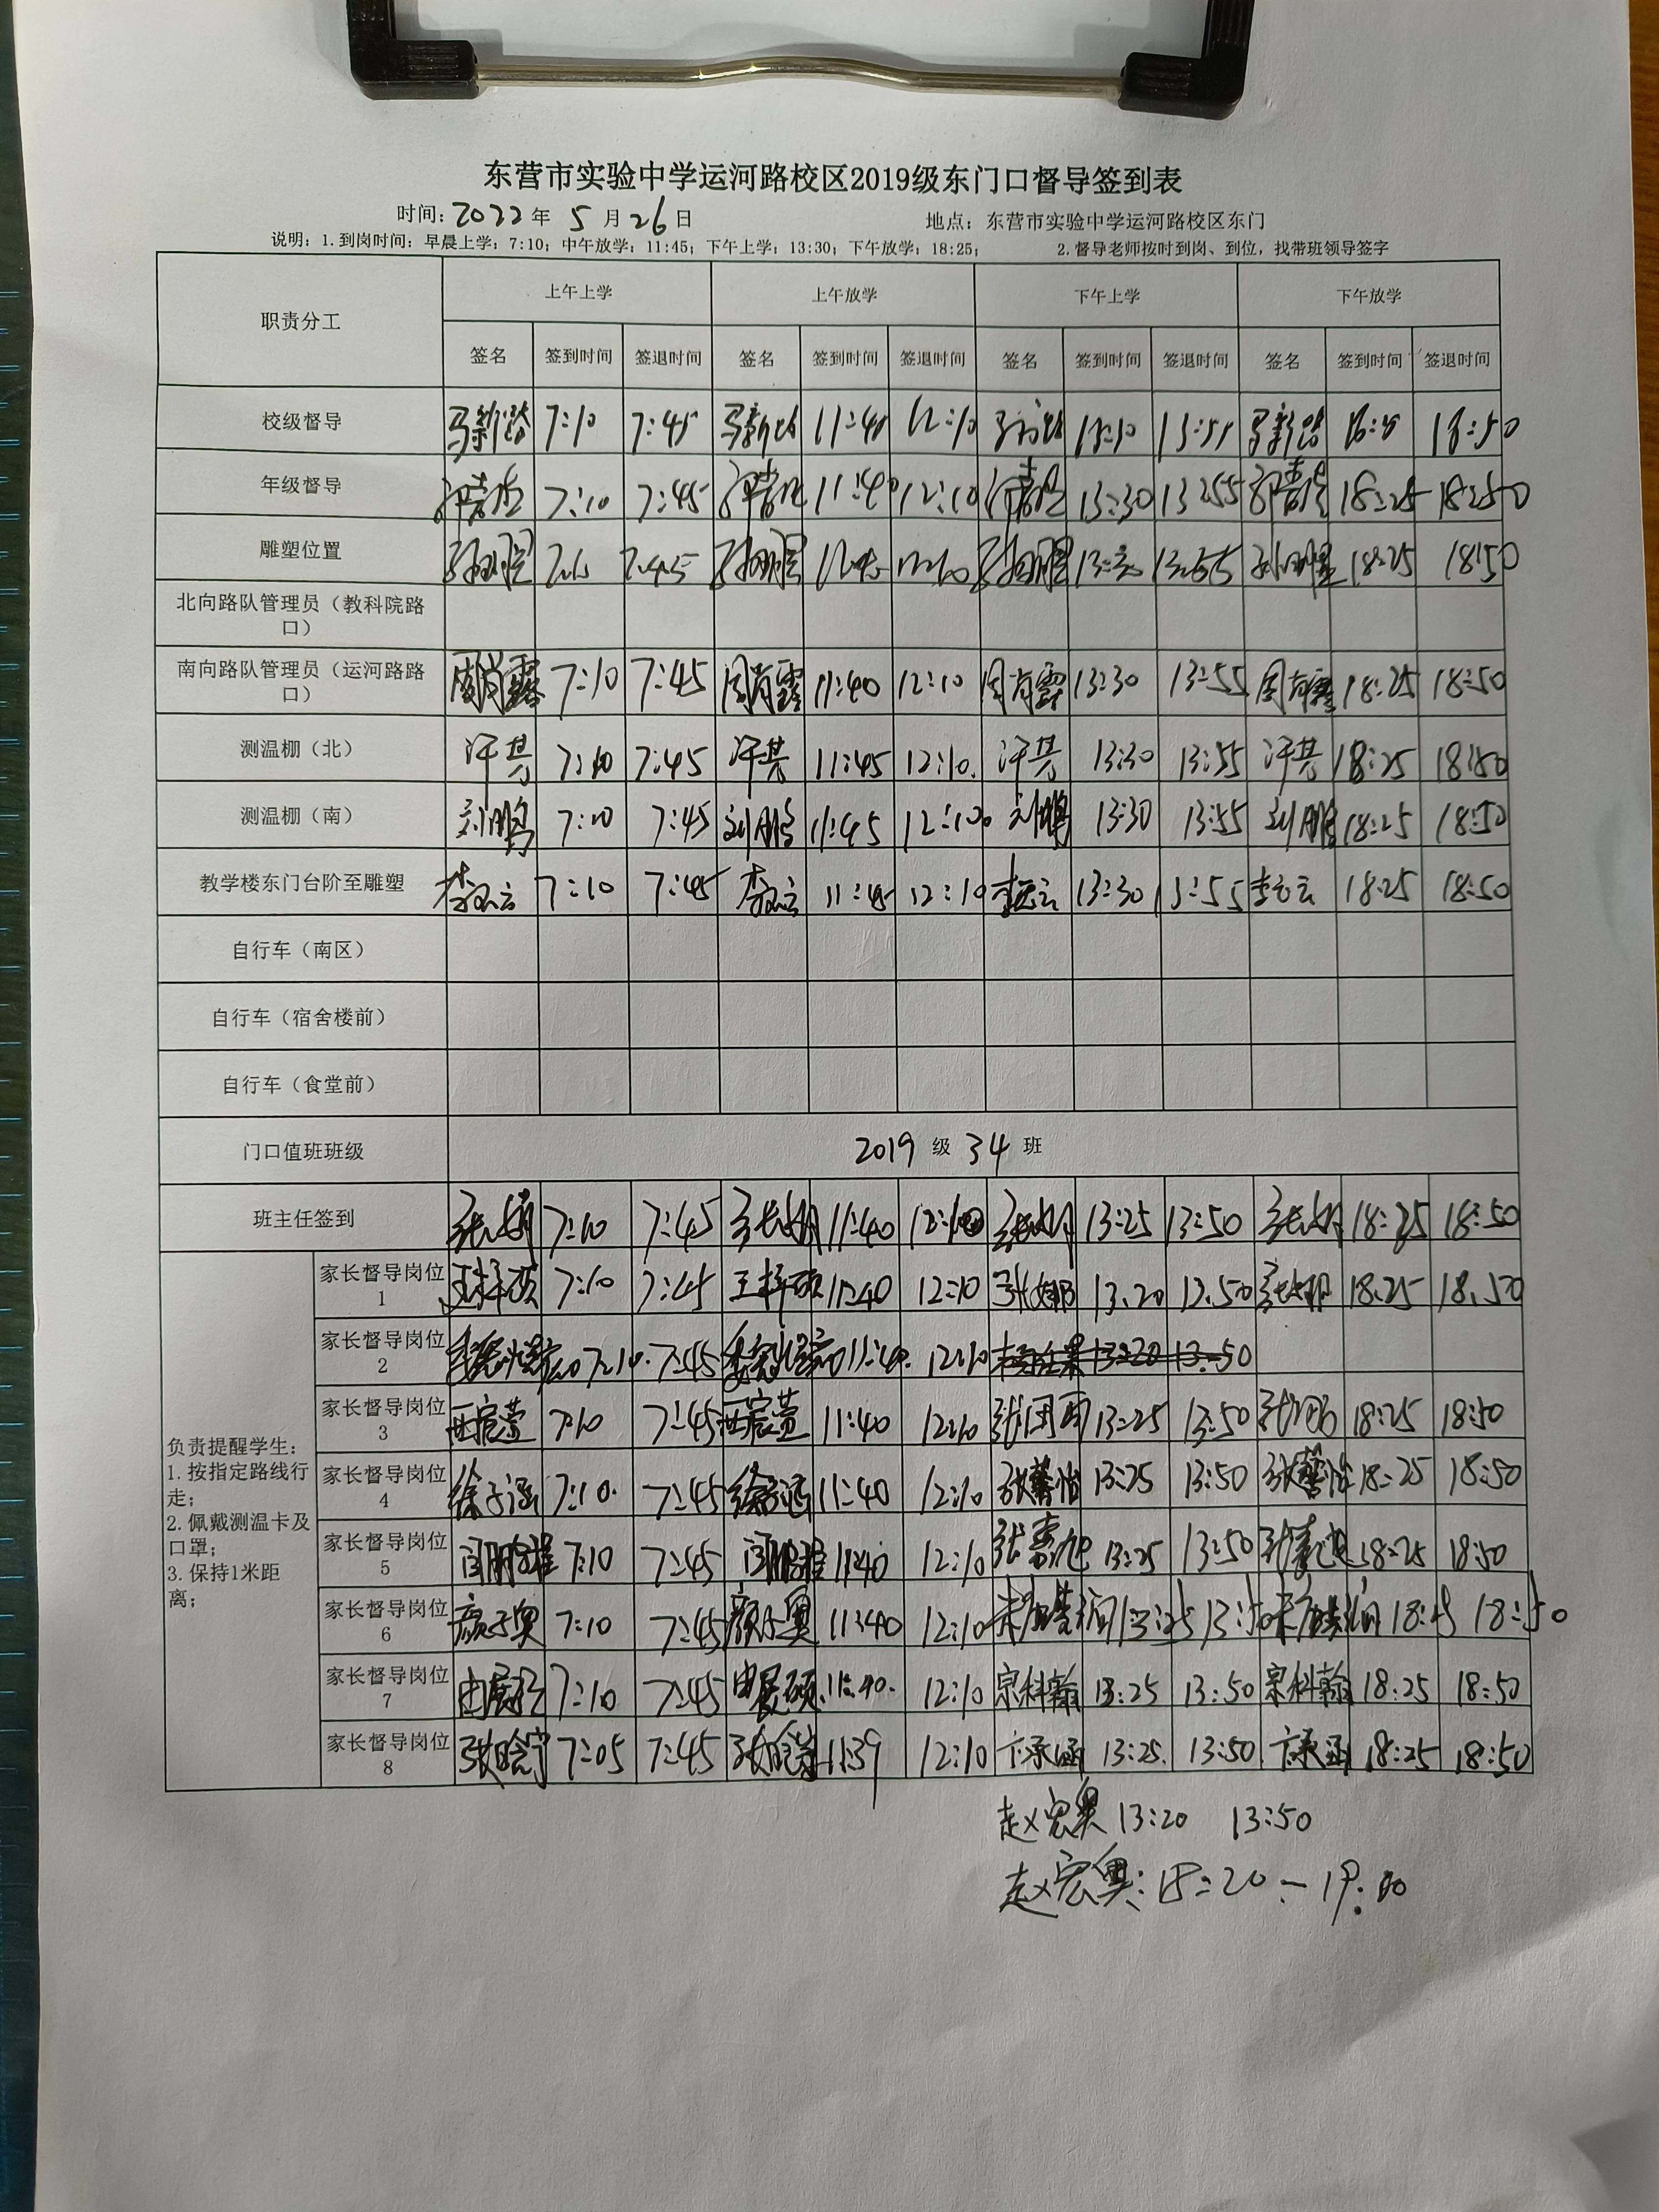 东营市实验中学运河路校区2019级东门口督导签到表
时间：2022年 5 月 26 日 地点：东营市实验中学运河路校区东门
说明：1.到岗时间：早晨上学：7:10；中午放学：11:45；下午上学：13:30；下午放学：18:25； 2.督导老师按时到岗、到位，找带班领导签字
职责分工 上午上学 上午放学 下午上学 下午放学
签名 签到时间 签退时间 签名 签到时间 签退时间 签名 签到时间 签退时间 签名 签到时间 签退时间
校级督导 马新路 7:10 7:45 马新路 11:40 12:10 13:10 马新路 18:50
年级督导 7:10 7:45 11:40 12:10 13:30 13:55 18:25 18:50
雕塑位置 7:45 13:55 18:25 18:50
北向路队管理员（教科院路口）
南向路队管理员（运河路路口） 周肖霞 7:10 7:45 周肖霞 11:40 12:10 周肖霞 13:30 13:55 周肖霞 18:25 18:50
测温棚（北） 7:10 7:45 11:45 12:10 13:30 13:55 18:25 18:50
测温棚（南） 刘鹏 7:10 7:45 刘鹏 11:45 12:10 刘鹏 13:30 13:55 刘鹏 18:25 18:50
教学楼东门台阶至雕塑 7:10 7:45 11:45 12:10 13:30 13:55 18:25 18:50
自行车（南区）
自行车（宿舍楼前）
自行车（食堂前）
门口值班班级 2019 级 34 班
班主任签到 7:10 7:45 11:40 12:10 13:25 13:50 18:25 18:50
负责提醒学生：
1.按指定路线行走；
2.佩戴测温卡及口罩；
3.保持1米距离；
家长督导岗位1 王梓硕 7:10 7:45 王梓硕 11:40 12:10 13.20 13.50 18.25 18.50
家长督导岗位2 7:10 7:45 11:40 12:10 13:20 13:50
家长督导岗位3 7:10 7:45 11:40 12:10 13:25 13:50 18:25 18:50
家长督导岗位4 徐子涵 7:10 7:45 徐子涵 11:40 12:10 张馨怡 13:25 13:50 张馨怡 18:25 18:50
家长督导岗位5 7:10 7:45 11:40 12:10 13:25 13:50 18:25 18:50
家长督导岗位6 颜子奥 7:10 7:45 颜子奥 11:40 12:10 13:25 13:50 18:25 18:50
家长督导岗位7 7:10 7:45 11:40 12:10 宗科翰 13:25 13:50 宗科翰 18:25 18:50
家长督导岗位8 张晗宁 7:05 7:45 11:39 12:10 卞承涵 13:25 13:50 卞承涵 18:25 18:50
赵宏奥 13:20 13:50
赵宏奥：18:20 - 19:00